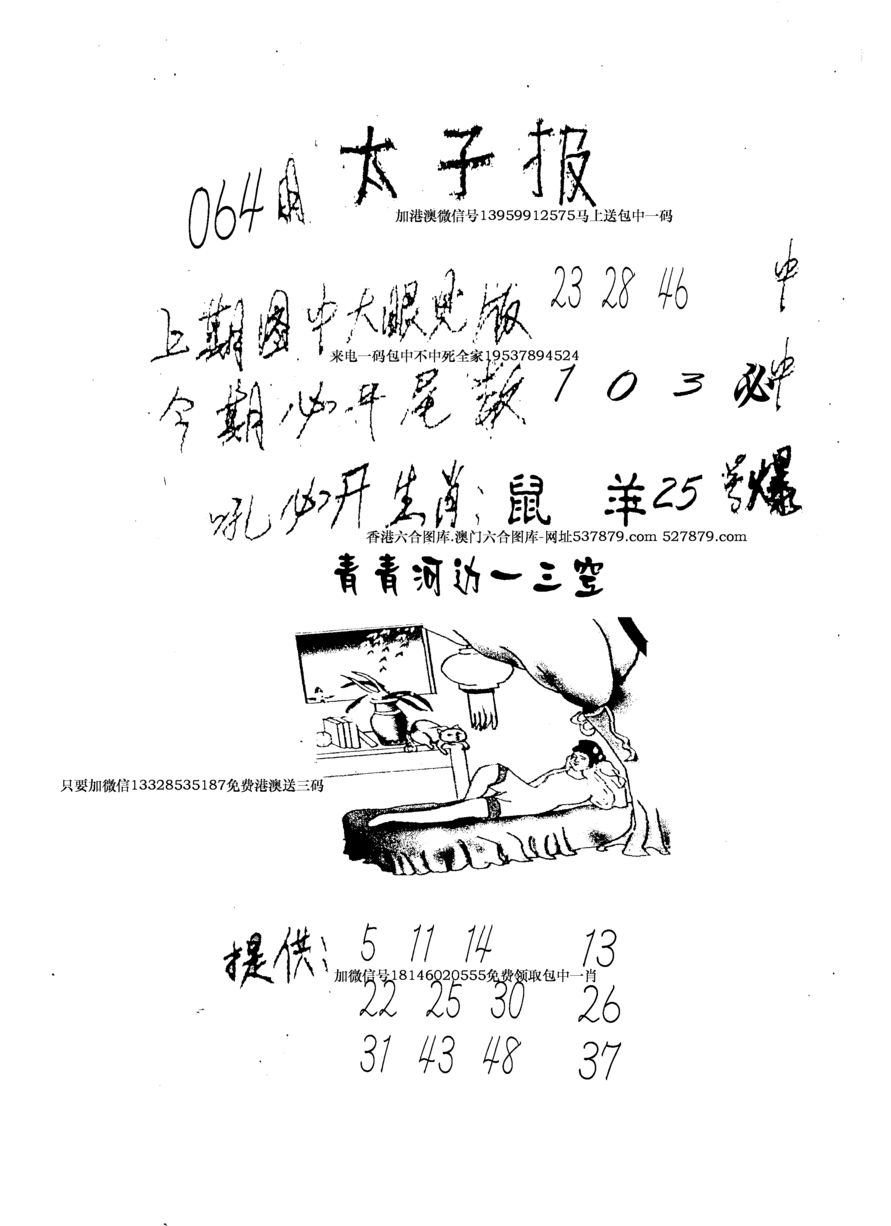 太子报
064期
加港澳微信号13959912575马上送包中一码
上期图中大眼见版 23 28 46 中
来电一码包中不中死全家19537894524
今期必开尾数 1 0 3 必中
吼必开生肖: 鼠 羊 25 爆
香港六合图库.澳门六合图库-网址537879.com 527879.com
青青河边一三空
只要加微信13328535187免费港澳送三码
提供: 5 11 14 13
加微信号18146020555免费领取包中一肖
22 25 30 26
31 43 48 37